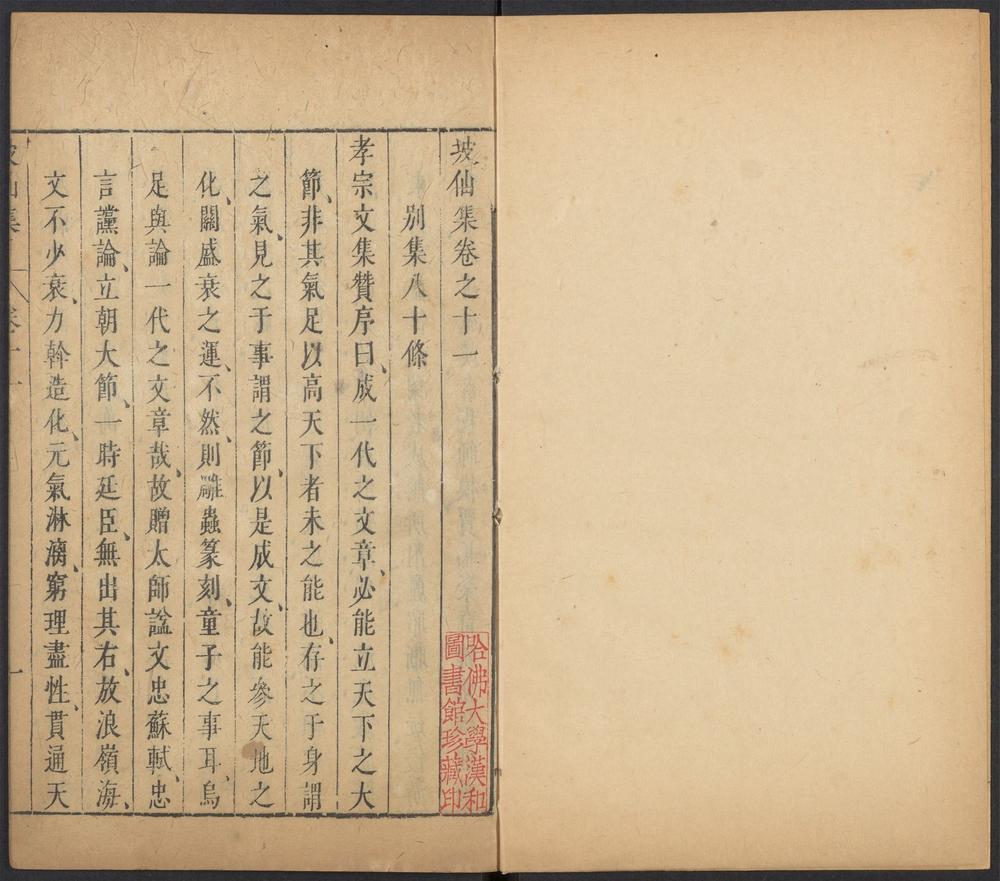 坡仙集卷之十一
別集八十條
孝宗文集贊序曰、成一代之文章、必能立天下之大
節、非其氣足以高天下者未之能也、存之于身謂
之氣、見之于事謂之節、以是成文、故能參天地之
化、關盛衰之運、不然、則雕蟲篆刻、童子之事耳、烏
足與論一代之文章哉、故贈太師諡文忠蘇軾、忠
言讜論、立朝大節、一時廷臣、無出其右、放浪嶺海、
文不少衰、力斡造化、元氣淋漓、窮理盡性、貫通天
坡仙集 卷十一 一
哈佛大學漢和
圖書館珍藏印